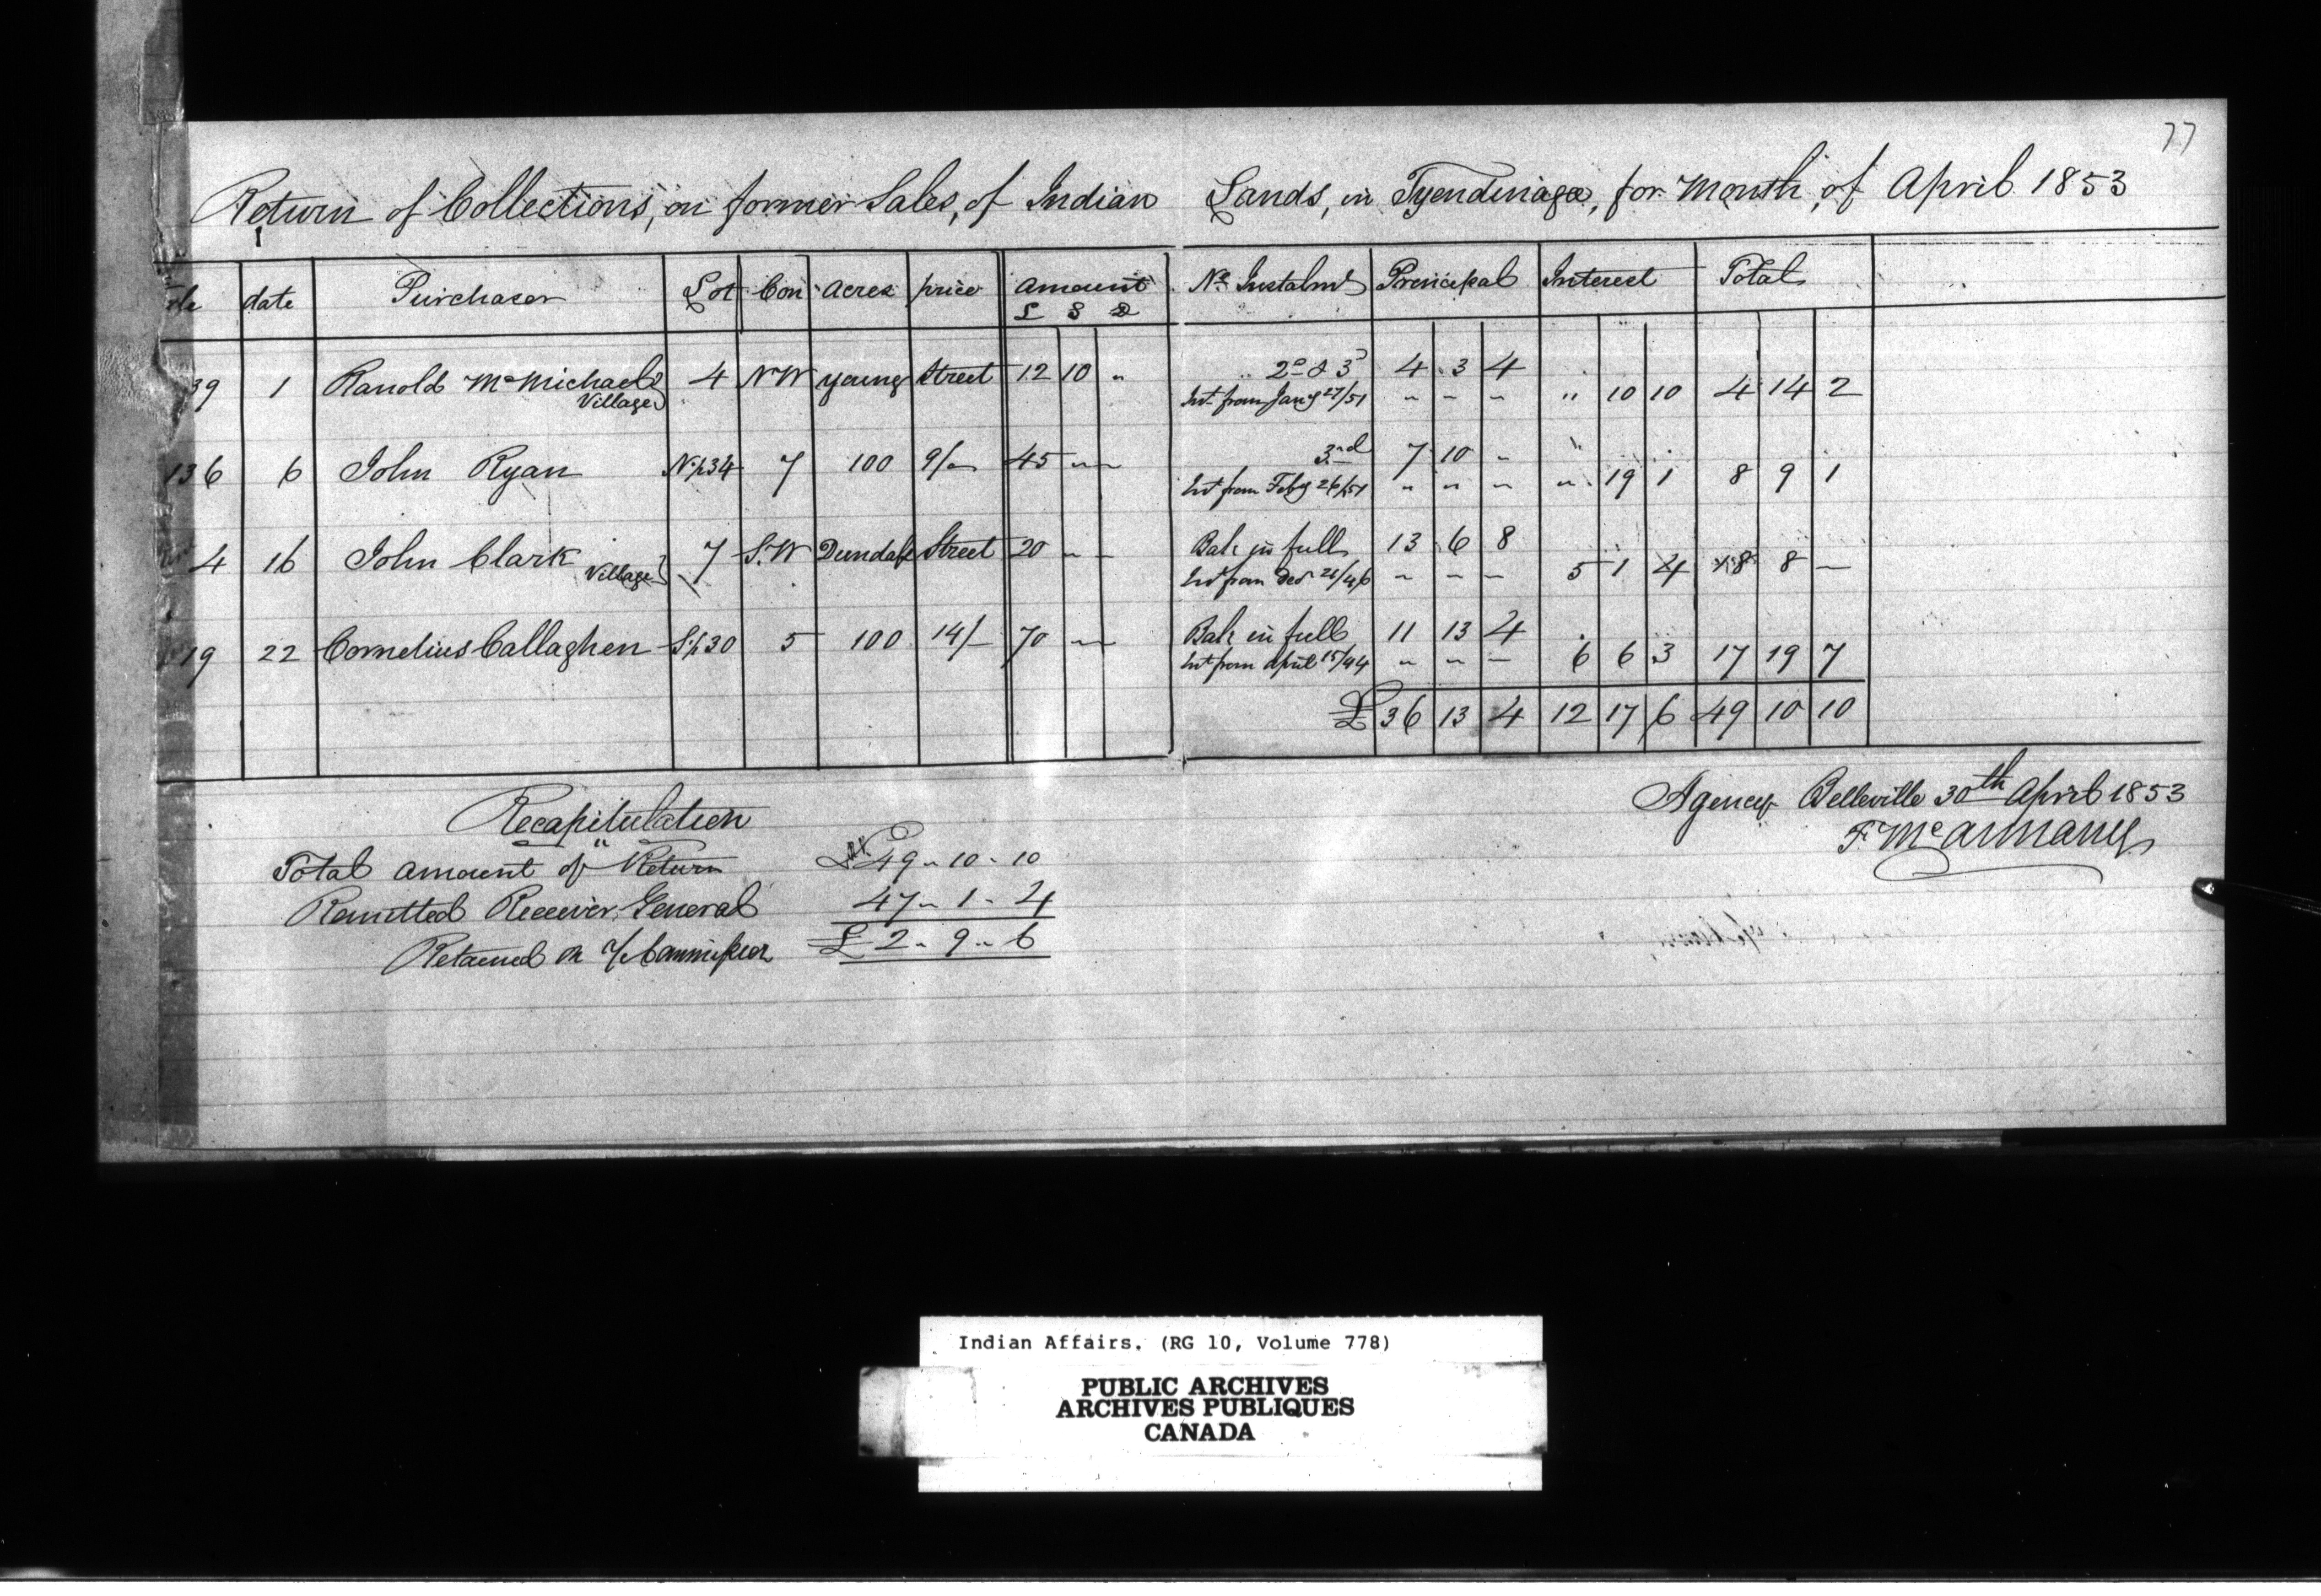 77
Return of Collections, on former Sales, of Indian Lands, in Tyendinaga, for Month, of April 1853
date Purchaser Lot Con Acres price Amount No Instalmt Principal Interest Total
£ S D
39 1 Ranold McMichael 4 N W young Street 12 10 " 2d & 3d 4 3 4
Village Int from Jany 27/51 " " " " 10 10 4 14 2
136 6 John Ryan N½34 7 100 9/- 45 " " 3rd 7 10 "
Int from Feby 26/51 " " " " 19 1 8 9 1
4 16 John Clark 7 S.W Dundass Street 20 " " Bale in full 13 6 8
Village Int from Decr 26/46 " " " 5 1 4 18 8 —
19 22 Cornelius Callaghen S½30 5 100 14/- 70 " " Bale in full 11 13 4
Int from April 15/44 " " — 6 6 3 17 19 7
£ 36 13 4 12 17 6 49 10 10
Agency Belleville 30th April 1853
F. McAnnany
Recapitulation
Total amount of Return £49 " 10 " 10
Remitted Receiver General 47 " 1 " 4
Retained on % Commission £ 2 " 9 " 6
Indian Affairs. (RG 10, Volume 778)
PUBLIC ARCHIVES
ARCHIVES PUBLIQUES
CANADA